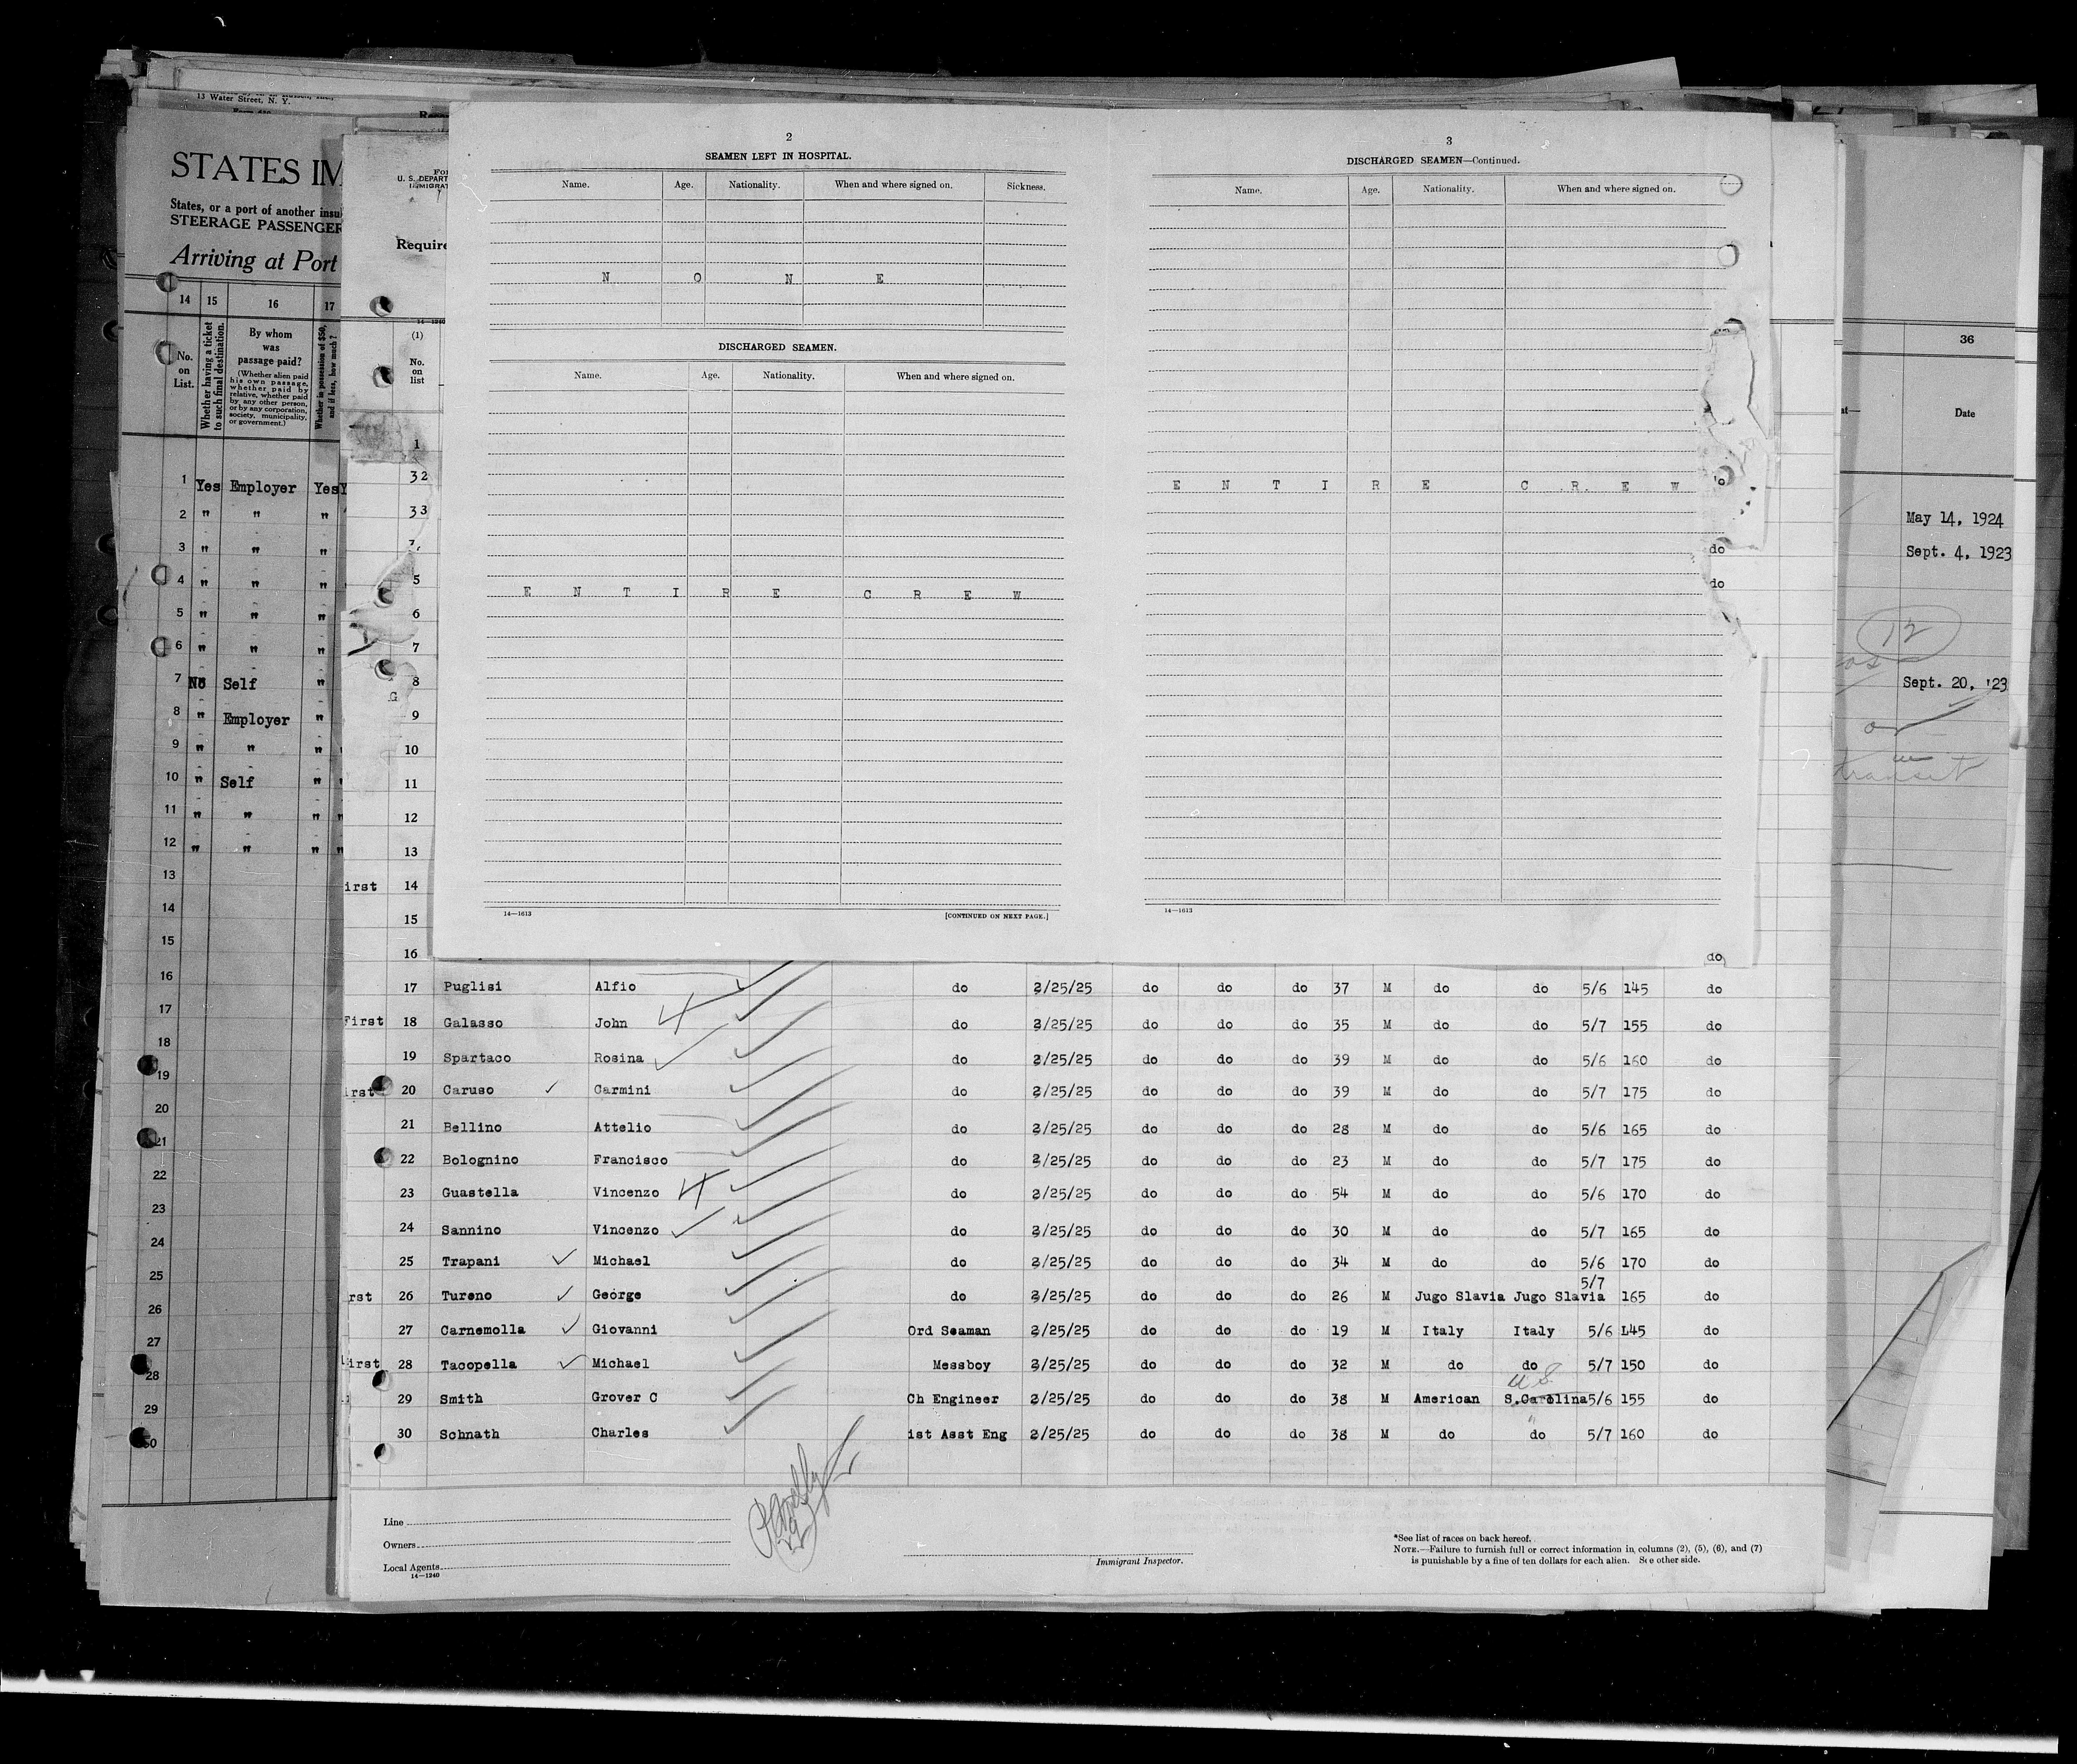 13 Water Street, N. Y.
STATES IM
States, or a port of another insu
STEERAGE PASSENGER
Arriving at Port
14 15 16 17
No. on List.
Whether having a ticket to such final destination.
By whom was passage paid?
(Whether alien paid his own passage, whether paid by relative, whether paid by any other person, or by any corporation, society, municipality, or government.)
Whether in possession of $50, and if less, how much?
1 Yes Employer Yes
2 " " "
3 " " "
4 " " "
5 " " "
6 " " "
7 No Self "
8 " Employer "
9 " " "
10 " Self "
11 " " "
12 " " "
13
14
15
16
17
18
19
20
21
22
23
24
25
26
27
28
29
30
U. S. DEPART
IMMIGRAT
Require
14—1240
(1)
No. on list
1
32
33
5
6
7
8
G
9
10
11
12
13
irst 14
15
16
2
SEAMEN LEFT IN HOSPITAL.
Name. Age. Nationality. When and where signed on. Sickness.
N O N E
DISCHARGED SEAMEN.
Name. Age. Nationality. When and where signed on.
E N T I R E C R E W
14—1613 [CONTINUED ON NEXT PAGE.]
3
DISCHARGED SEAMEN—Continued.
Name. Age. Nationality. When and where signed on.
E N T I R E C R E W
14—1613
do
do
do
do
17 Puglisi Alfio do 2/25/25 do do do 37 M do do 5/6 145 do
First 18 Galasso John do 2/25/25 do do do 35 M do do 5/7 155 do
19 Spartaco Rosina do 2/25/25 do do do 39 M do do 5/6 160 do
irst 20 Caruso Carmini do 2/25/25 do do do 39 M do do 5/7 175 do
21 Bellino Attelio do 2/25/25 do do do 28 M do do 5/6 165 do
22 Bolognino Francisco do 2/25/25 do do do 23 M do do 5/7 175 do
23 Guastella Vincenzo do 2/25/25 do do do 54 M do do 5/6 170 do
24 Sannino Vincenzo do 2/25/25 do do do 30 M do do 5/7 165 do
25 Trapani Michael do 2/25/25 do do do 34 M do do 5/6 170 do
rst 26 Tureno George do 2/25/25 do do do 26 M Jugo Slavia Jugo Slavia 5/7 165 do
27 Carnemolla Giovanni Ord Seaman 2/25/25 do do do 19 M Italy Italy 5/6 L45 do
First 28 Tacopella Michael Messboy 2/25/25 do do do 32 M do do 5/7 150 do
U.S.
29 Smith Grover C Ch Engineer 2/25/25 do do do 38 M American S.Carolina 5/6 155 do
30 Schnath Charles 1st Asst Eng 2/25/25 do do do 38 M do do 5/7 160 do
Line
Owners
Local Agents
14—1240
Immigrant Inspector.
*See list of races on back hereof.
NOTE.—Failure to furnish full or correct information in columns (2), (5), (6), and (7)
is punishable by a fine of ten dollars for each alien. See other side.
36
Date
May 14, 1924
Sept. 4, 1923
12
Sept. 20, '23
or
in
transit